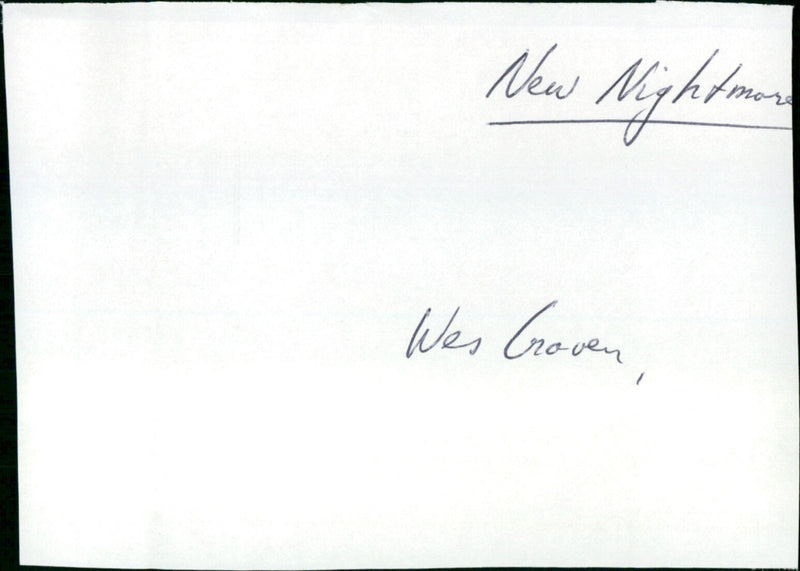 New Nightmare
Wes Craven,